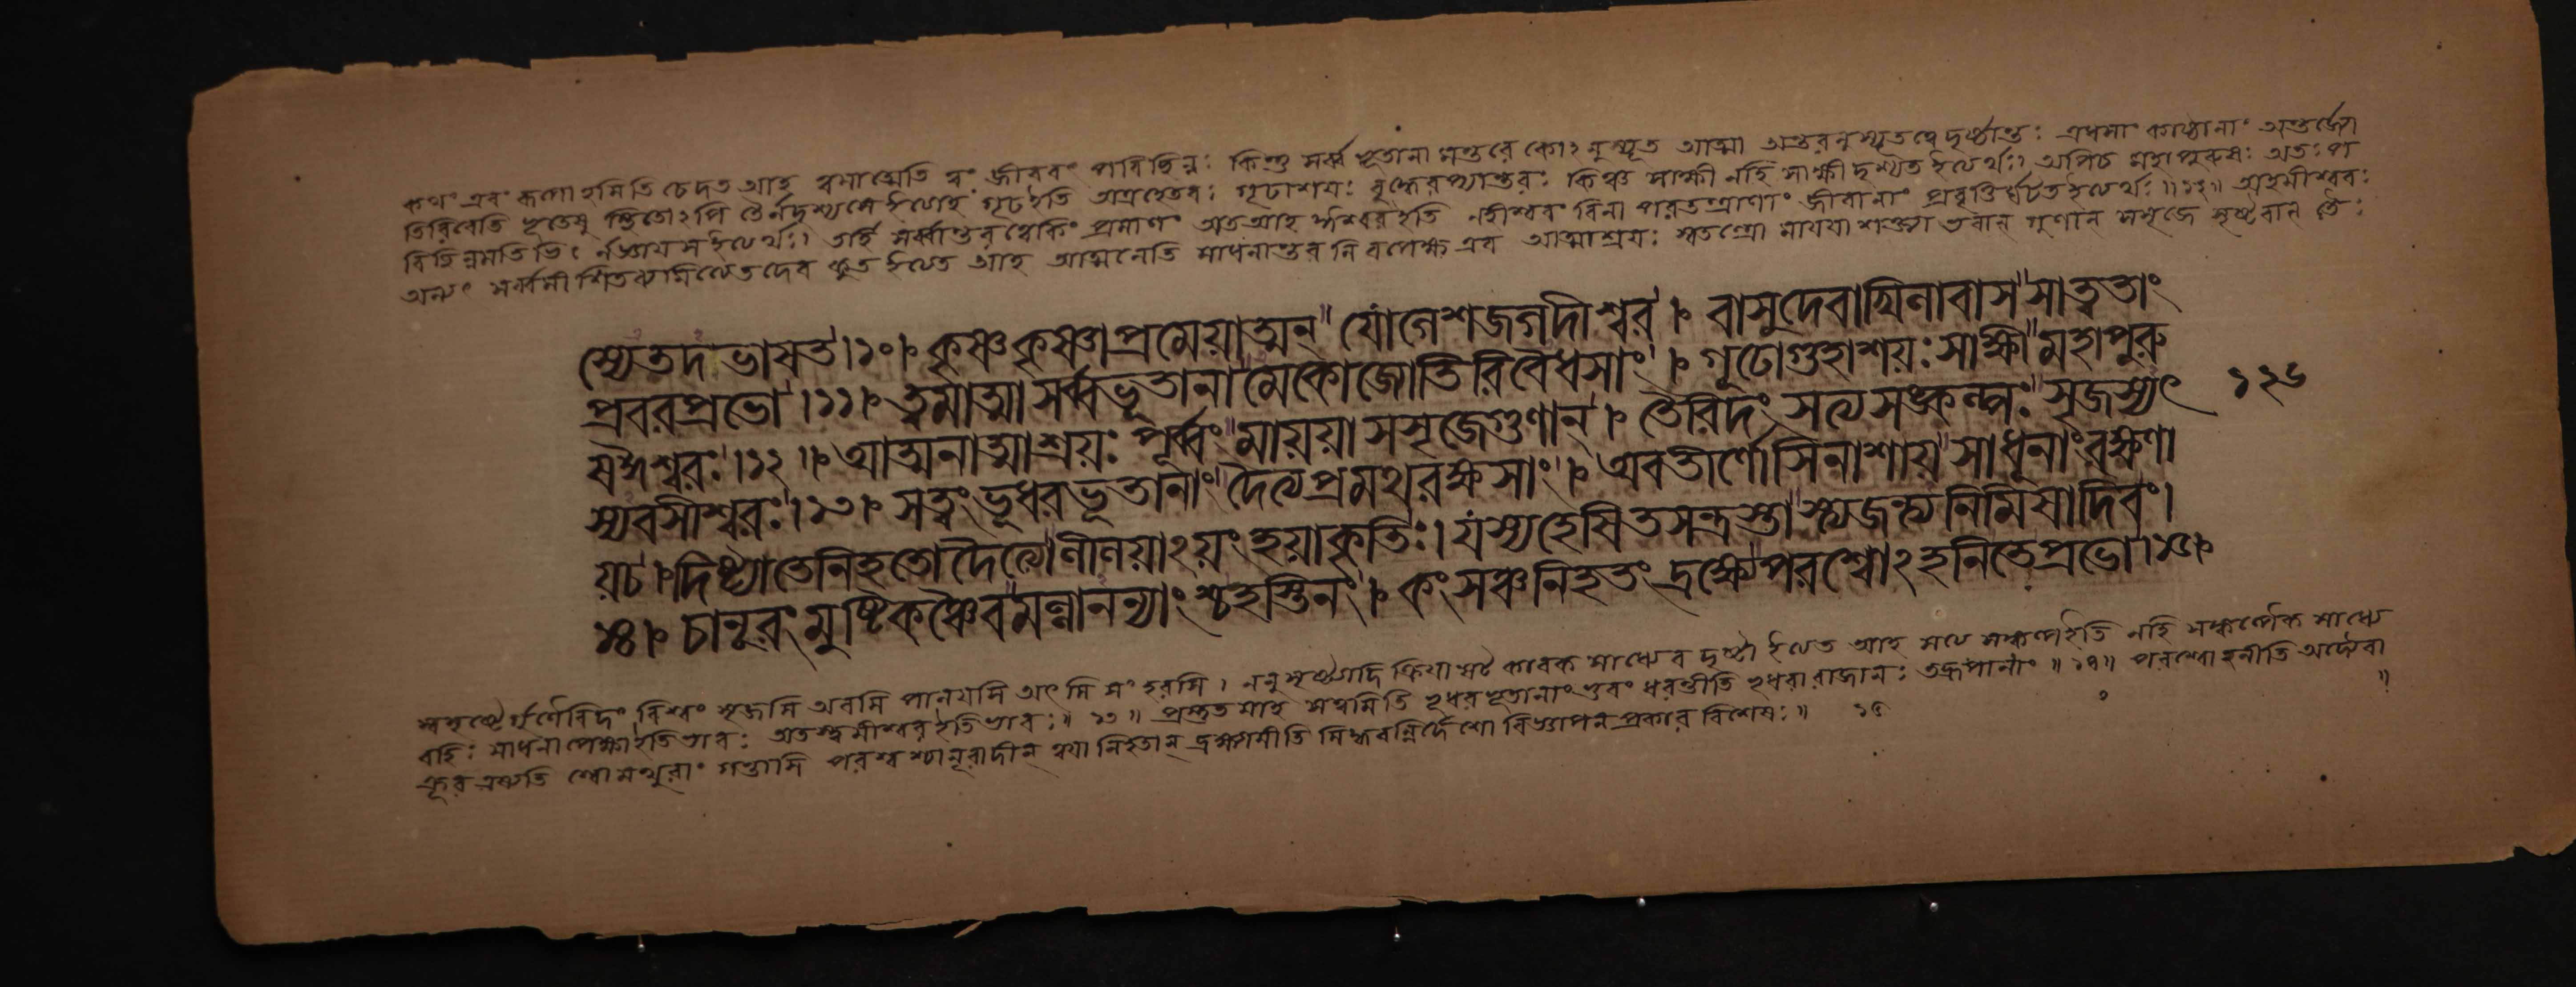 কথং এবং রূপোঽহমিতি চেদত আহ ত্বমাত্মেতি ত্বং জীববং পরিছিন্নঃ কিন্তু সর্ব্ব ভূতানা মন্তরে কোঽনুস্যূত আত্মা অন্তরনুস্যূতত্বে দৃষ্টান্তঃ এধসাং কাষ্ঠানাং অন্তর্জ্যো
তিরিবেতি ভূতেষু স্থিতোঽপি তৈর্নদৃশ্যসে ইত্যাহ গূঢইতি অত্রহেতবঃ গুহাশয়ঃ বুদ্ধেরপ্যান্তরঃ কিঞ্চ সাক্ষী নহি সাক্ষী দৃশ্যৈত ইত্যর্থঃ। অপিচ মহাপুরুষঃ অতঃপ
রিছিন্নমতিভিঃ র্নজ্ঞায়স ইত্যর্থঃ। তর্হি সর্ব্বান্তরত্বেকিং প্রমাণং অতআহ ঈশ্বরইতি নহীশ্বরং বিনা পরতন্ত্রাণাং জীবানাং প্রবৃত্তির্ঘটত ইত্যর্থঃ॥১২॥ অহমীশ্বরঃ
অন্যৎ সর্ব্বমীশিতব্যমিত্যেতদেব কুত ইত্যত আহ আত্মনেতি সাধনান্তর নিরপেক্ষ এব আত্মাশ্রয়ঃ স্বতন্ত্রো মায়যা শক্ত্যা ভবান্ গুণান্ সসৃজে সৃষ্টবান্ তৈঃ
স্ম্যেতদভাষত।১০। কৃষ্ণকৃষ্ণাপ্রমেয়াত্মন্ যোগেশজগদীশ্বর। বাসুদেবাখিলাবাস সাত্বতাং
প্রবরপ্রভো।১১। ত্বমাত্মাসর্ব্বভূতানামেকোজোতিরিবৈধসাং। গূঢোগুহাশয়ঃসাক্ষী মহাপুরু
ষঈশ্বরঃ।১২। আত্মনাত্মাশ্রয়ঃ পূর্ব্বং মায়য়া সসৃজেগুণান্। তৈরিদং সত্যসঙ্কল্পঃ সৃজস্যৎ ১২৬
স্যবসীশ্বরঃ।১৩। সত্বংভূধরভূতানাং দৈত্যপ্রমথরক্ষসাং। অবতীর্ণোসিনাশায় সাধূনাংরক্ষণা
য়চ। দিষ্ট্যাতেনিহতোদৈত্যোলীলয়াঽয়ংহয়াকৃতিঃ। যস্যহেষিতসন্ত্রস্তাস্ত্যজন্ত্যনিমিষাদিবং।
১৪। চানূরংমুষ্টিকঞ্চৈব মল্লানন্যাংশ্চহস্তিনং। কংসঞ্চনিহতংদ্রক্ষ্যে পরশ্বোঽহনিতেপ্রভো।১৫।
স্বসৃষ্টৈর্গুণৈরিদং বিশ্বং সৃজসি অবসি পালয়সি অৎসি সংহরসি। ননু সৃষ্ট্যাদি ক্রিয়া ঘট কারক সাধ্যৈব দৃষ্টা ইত্যত আহ সত্য সঙ্কল্পইতি নহি সঙ্কল্পৈক সাধ্যে
বহিঃ সাধনাপেক্ষাইতিভাবঃ অতস্ত্বমীশ্বরইতিভাবঃ॥১৩॥ প্রস্তুত মাহ সত্বমিতি ভূধরভূতানাং ভুবং ধরন্তীতি ভূধরারাজানঃ তদ্রূপানাং॥১৪॥ পরশ্বোহনীতি অদ্যৈবা
ক্রূর এষ্যতি শ্বোমথুরাং গন্তাসি পরশ্ব শ্চানূরাদীন্ ত্বযা নিহতান্ দ্রক্ষ্যামীতি সিদ্ধবন্নির্দেশো বিজ্ঞাপন প্রকার বিশেষঃ॥ ১৫